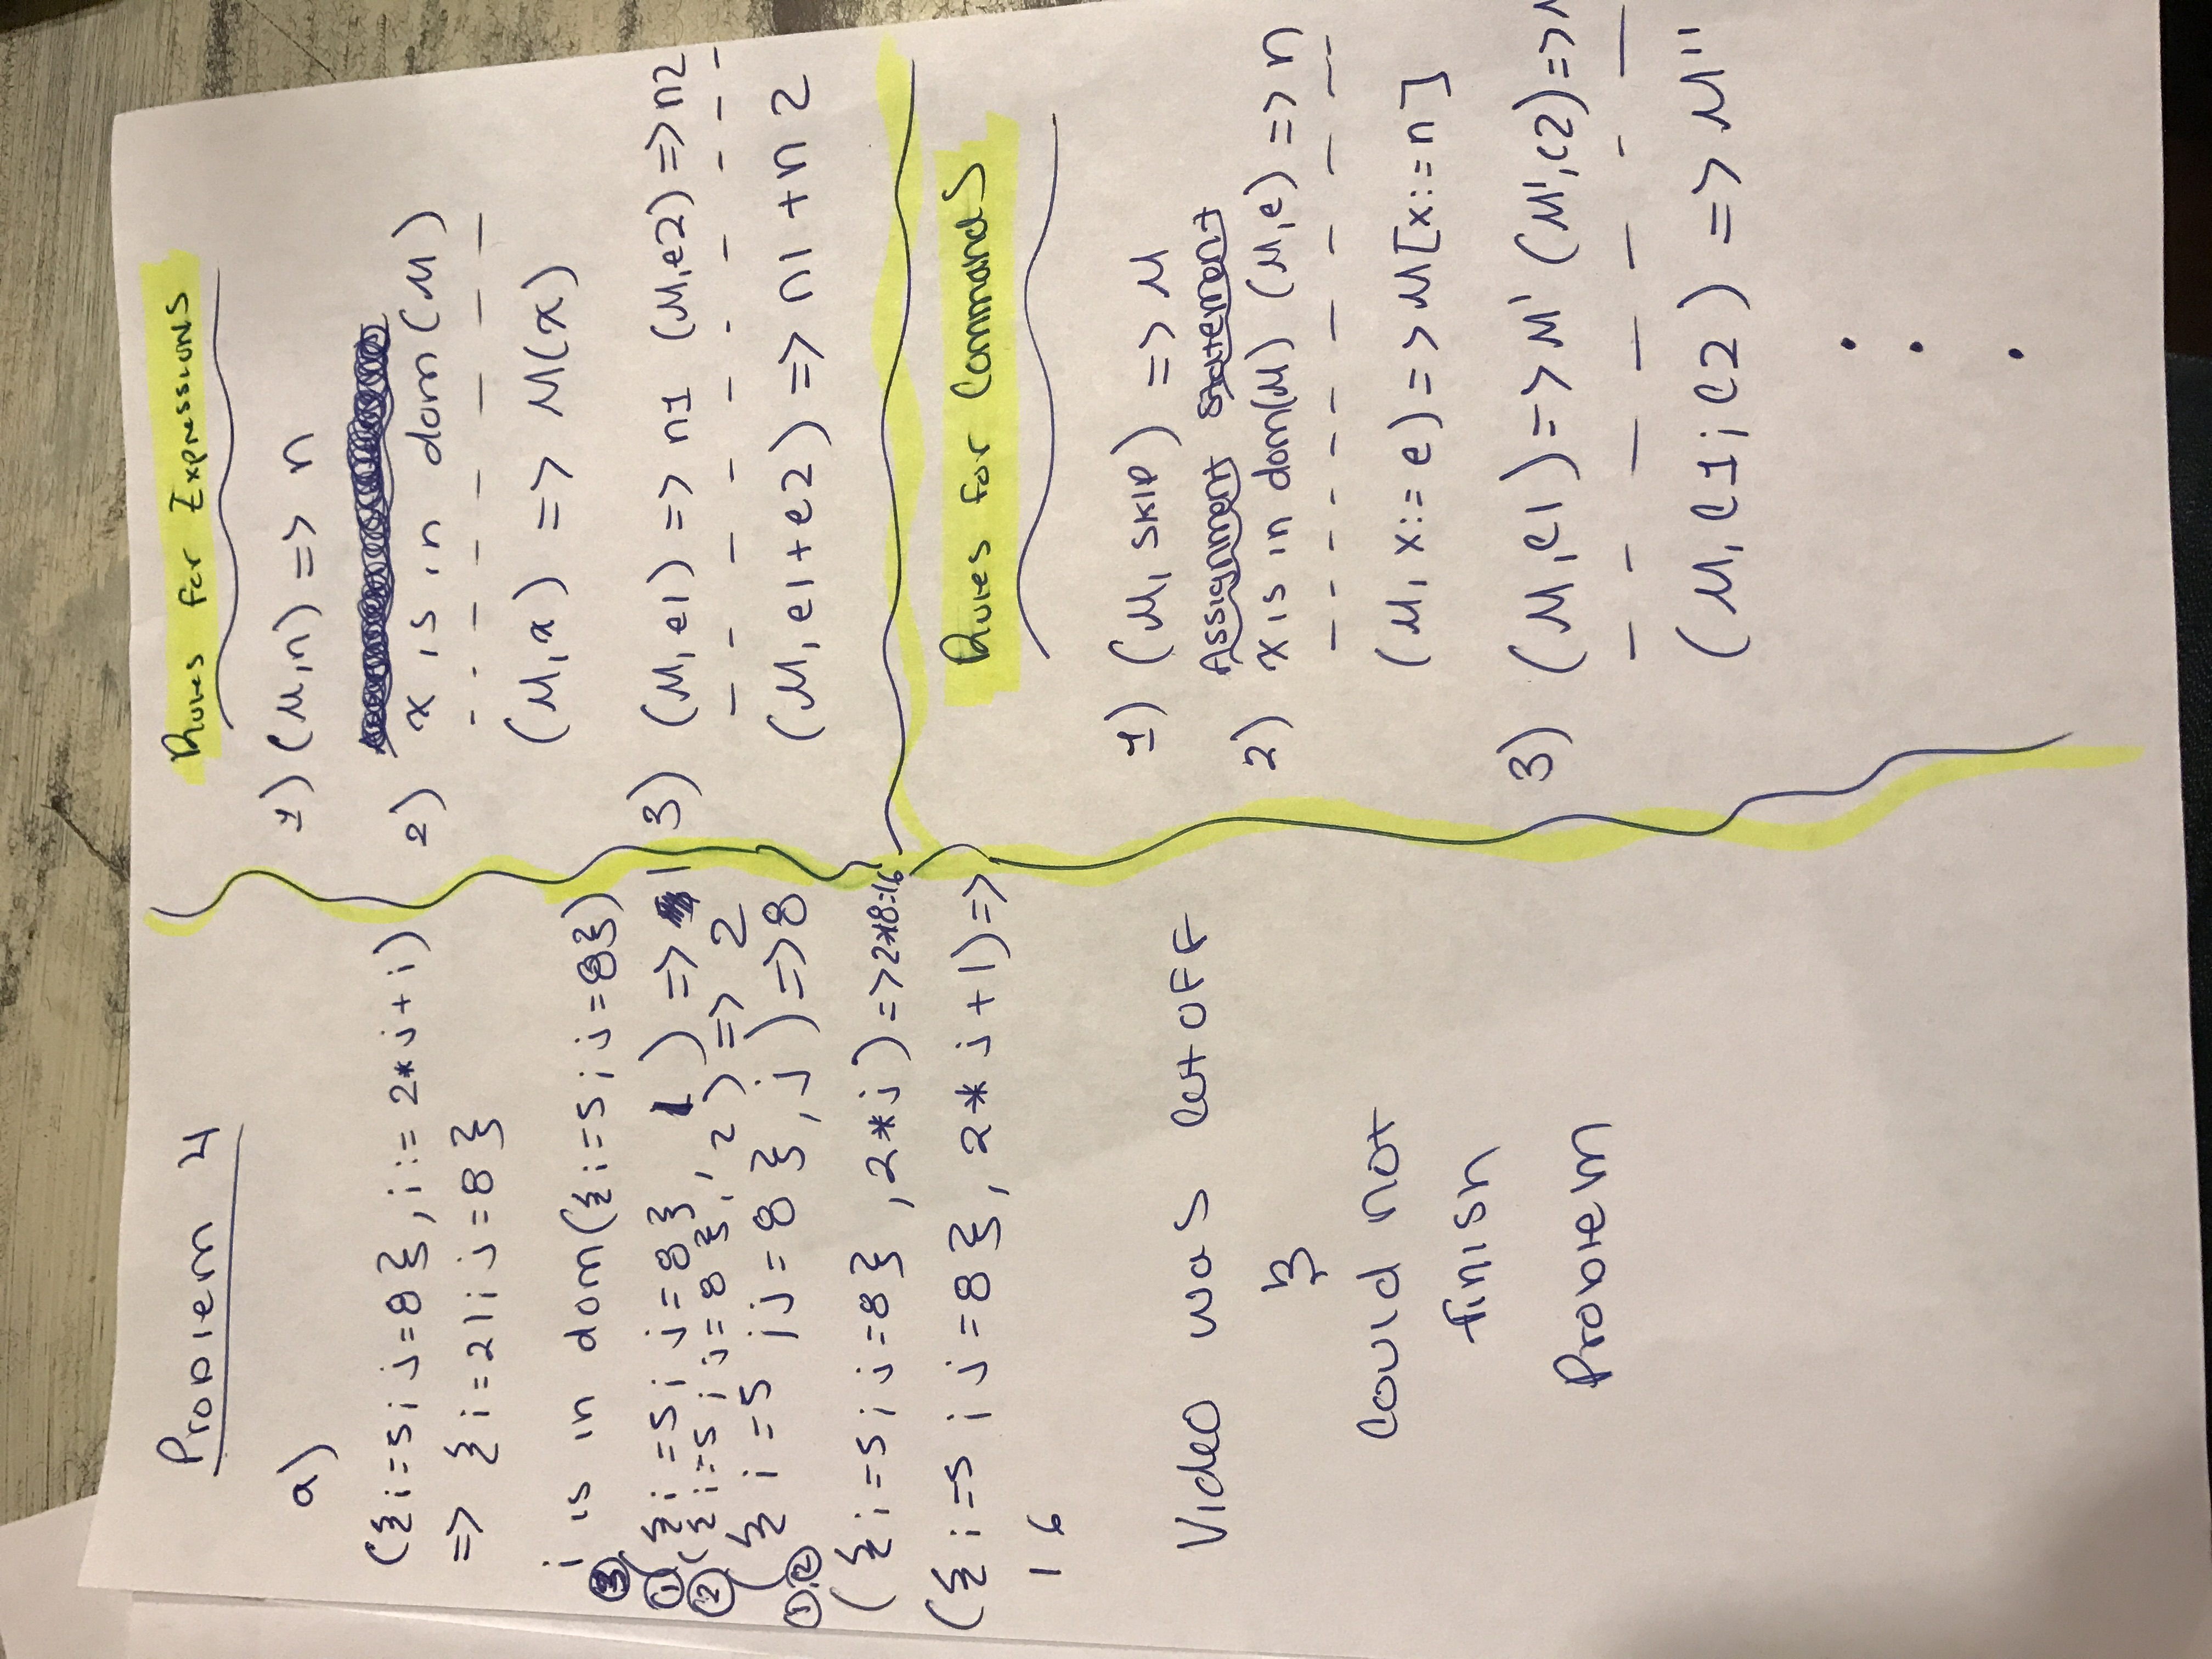 Problem 4
a)
({i=5; j=8}, i:= 2*j+i)
=> {i=21; j=8}
i is in dom({i=5; j=8})
③
① ({i=5; j=8}, 1) => 1
② ({i=5; j=8}, 2) => 2
({i=5; j=8}, j) => 8
①,②
({i=5; j=8}, 2*j) => 2*8=16
({i=5; j=8}, 2*j+1) =>
16
Video was cut off
&
Could not
finish
Problem
Rules for Expressions
1) (M,n) => n
2) x is in dom(M)
- - - - - - - -
(M,x) => M(x)
3) (M,e1) => n1 (M,e2) => n2
- - - - - - - - - -
(M,e1+e2) => n1+n2
Rules for Commands
1) (M, SKIP) => M
Assignment Statement
2) x is in dom(M) (M,e) => n
- - - - - - - - - - -
(M, x:= e) => M[x:=n]
3) (M,C1) => M' (M',C2) =>
- - - - - - -
(M,C1;C2) => M''
.
.
.